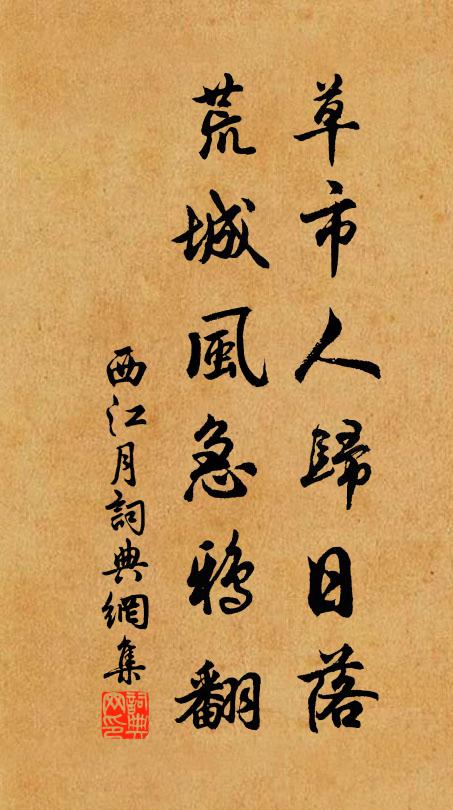 草市人歸日落
荒城風急鴉翻
西江月詞典網集
詞典網印